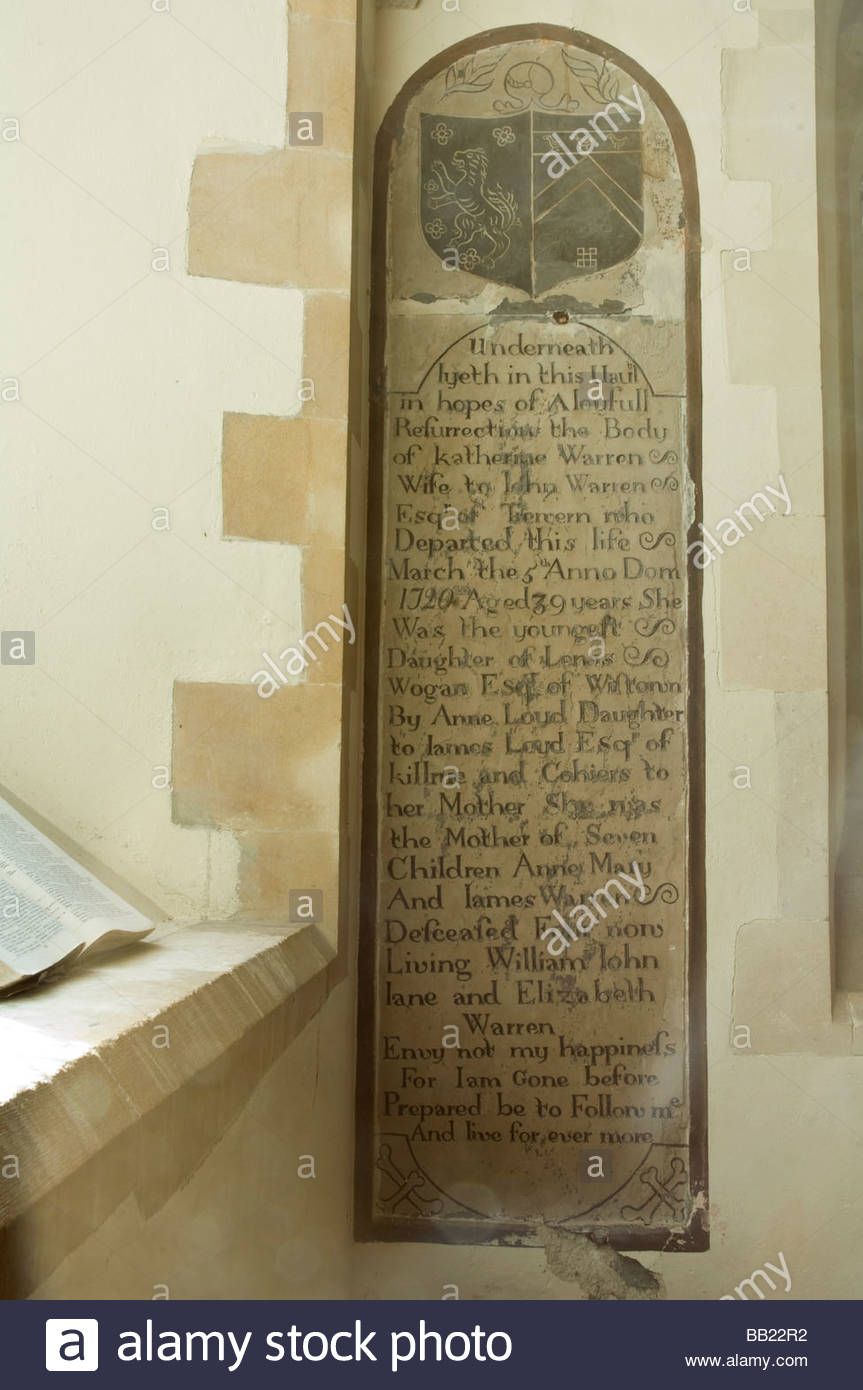 Underneath
lyeth in this Vault
in hopes of A Ioyfull
Reſurrection the Body
of Katherine Warren
Wife to Iohn Warren
Esqr of Trewern who
Departed this life
March the 5th Anno Dom
1720 Aged 39 years She
Was the youngeſt
Daughter of Lewis
Wogan Esqr of Wiſtown
By Anne Loyd Daughter
to Iames Loyd Esqr of
killrue and Cohiers to
her Mother She was
the Mother of Seven
Children Anne Mary
And Iames Warren
Deſceaſed now
Living William Iohn
Iane and Elizabeth
Warren
Envy not my happineſs
For I am Gone before
Prepared be to Follow me
And live for ever more
alamy
a
a alamy stock photo
BB22R2
www.alamy.com